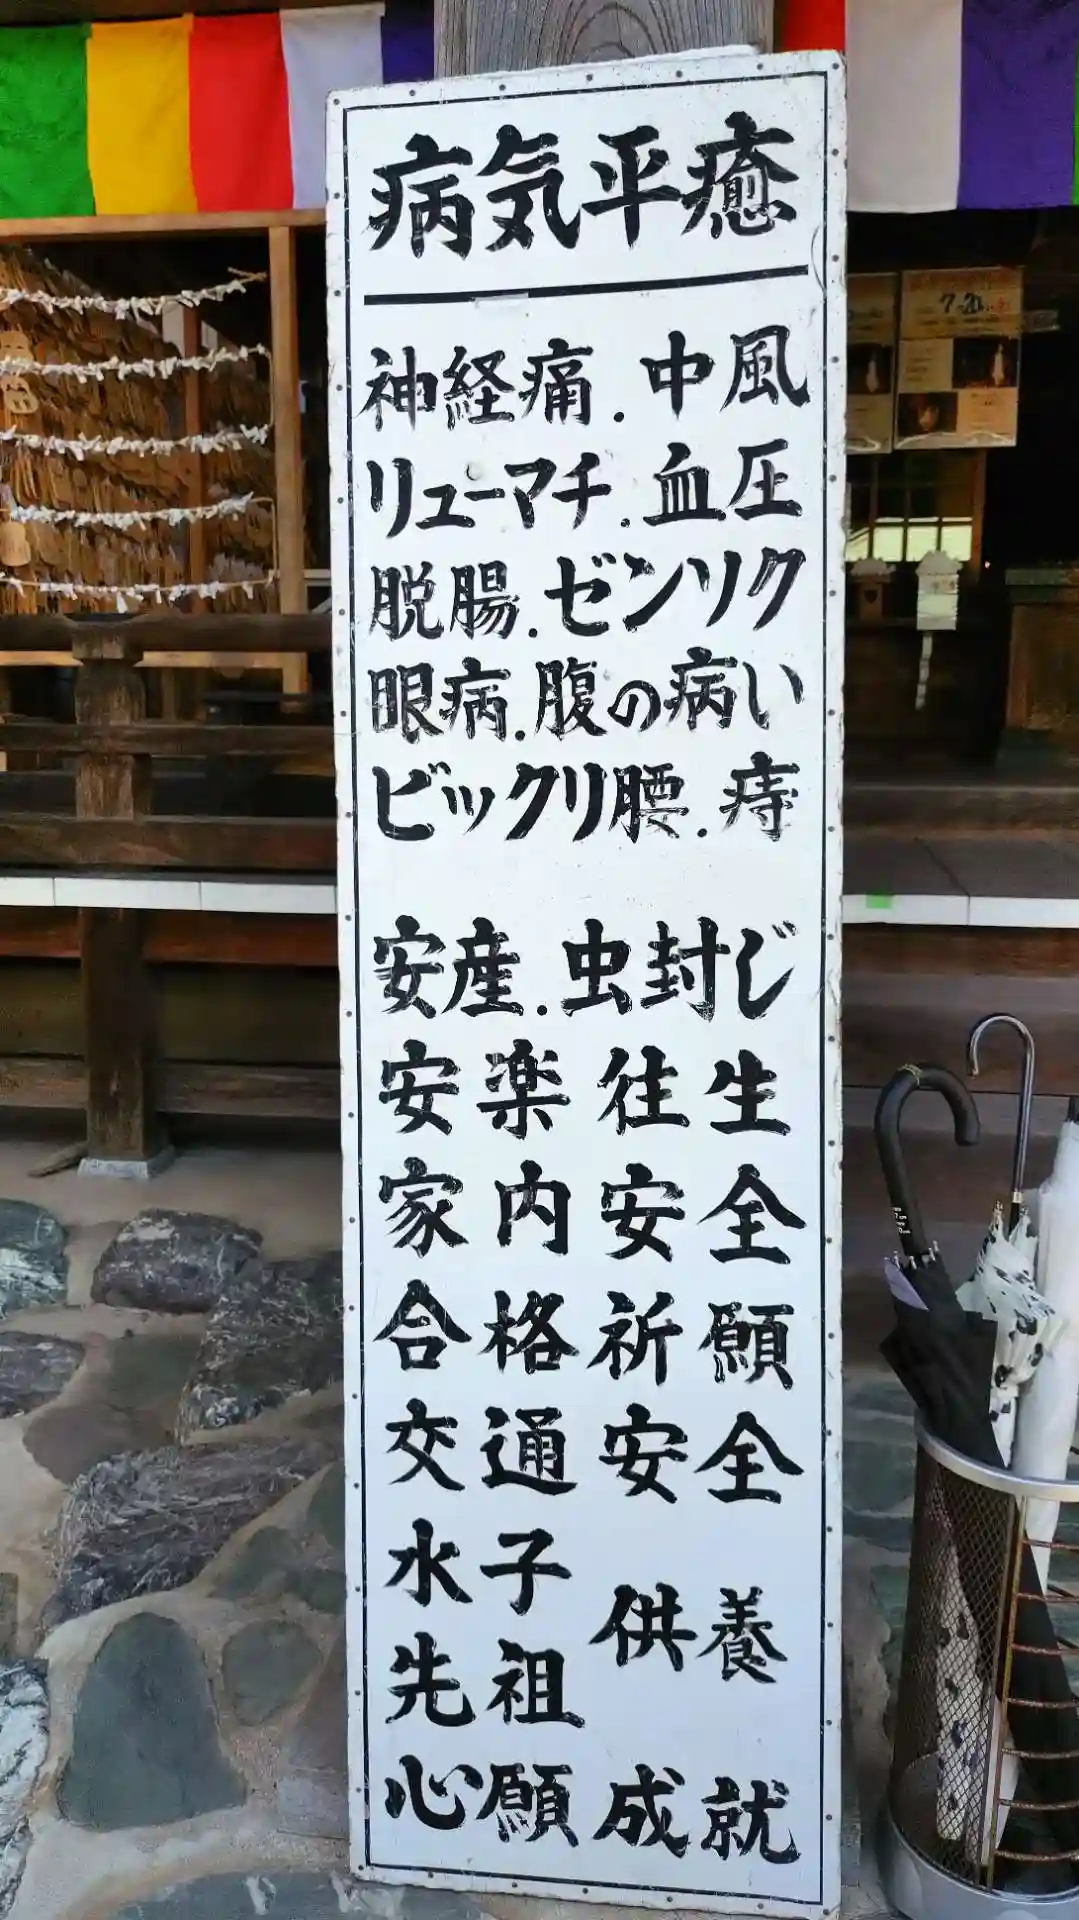 病気平癒
神経痛.中風
リューマチ.血圧
脱腸.ゼンソク
眼病.腹の病い
ビックリ腰.痔
安産.虫封じ
安楽往生
家内安全
合格祈願
交通安全
水子
先祖
供養
心願成就
7 20